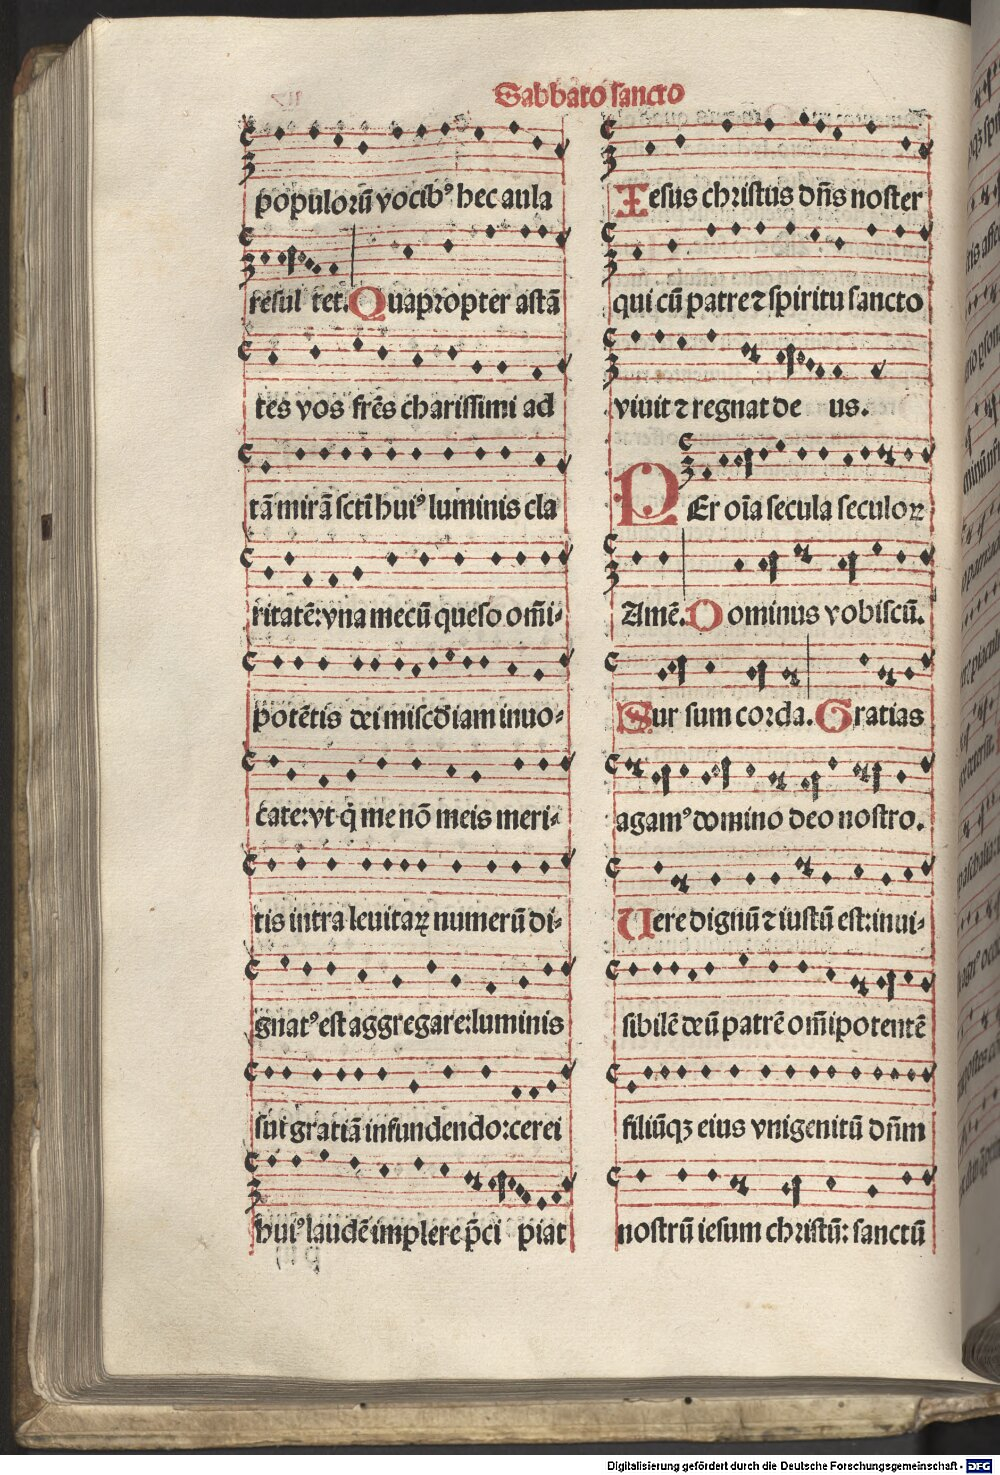 Sabbato sancto
populorū vocibꝰ hec aula
resul tet. Quapropter astā
tes vos frēs charissimi ad
tā mirā scti huiꝰ luminis cla
ritatē: vna mecū queso om̄i-
potētis dei misc̄diam inuo-
cate: vt q̇ me nō meis meri-
tis intra leuitaꝝ numerū di-
gnatꝰ est aggregare: luminis
sui gratiā infundendo: cerei
huiꝰ laudē implere p̄ci piat
Iesus christus dn̄s noster
qui cū patre ⁊ spiritu sancto
viuit ⁊ regnat de us.
PEr oīa secula seculoꝝ
Amē. Dominus vobiscū.
Sur sum corda. Gratias
agamꝰ domino deo nostro.
Uere dignū ⁊ iustū est: inui-
sibilē deū patrē om̄ipotentē
filiūqꝫ eius vnigenitū dn̄m
nostrū iesum christū: sanctū
Digitalisierung gefördert durch die Deutsche Forschungsgemeinschaft - DFG